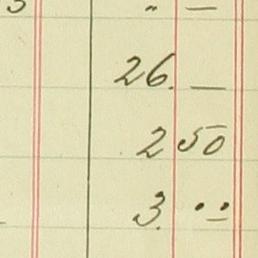 5 " —
26. —
2 50
3. " —